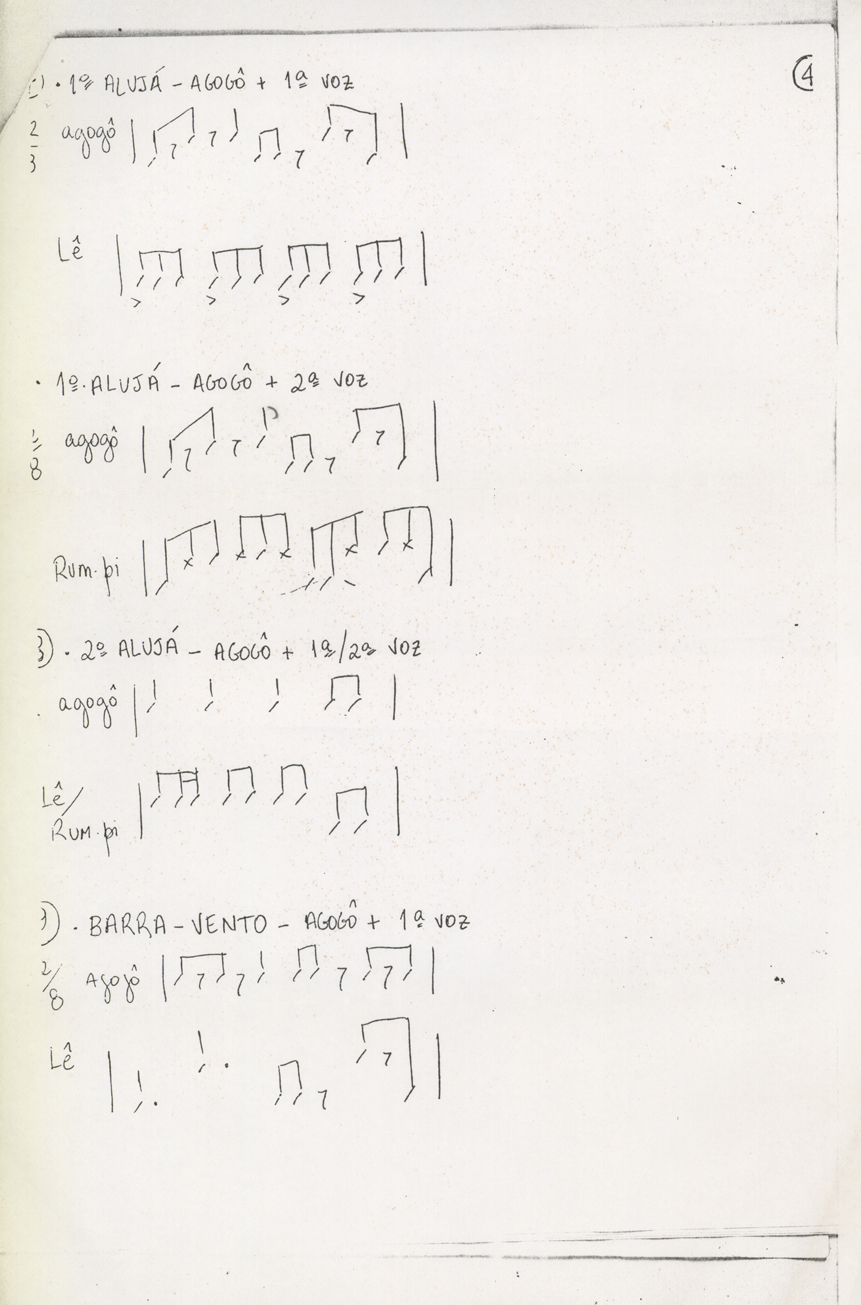 4
· 1º ALUJÁ - AGOGÔ + 1ª VOZ
2
3
agogô
Lê
· 1º. ALUJÁ - AGOGÔ + 2ª VOZ
8
agogô
Rum-pi
3) · 2º ALUJÁ - AGOGÔ + 1ª/2ª VOZ
agogô
Lê/
RUM-pi
· BARRA-VENTO - AGOGÔ + 1ª VOZ
2/8 Agogô
Lê